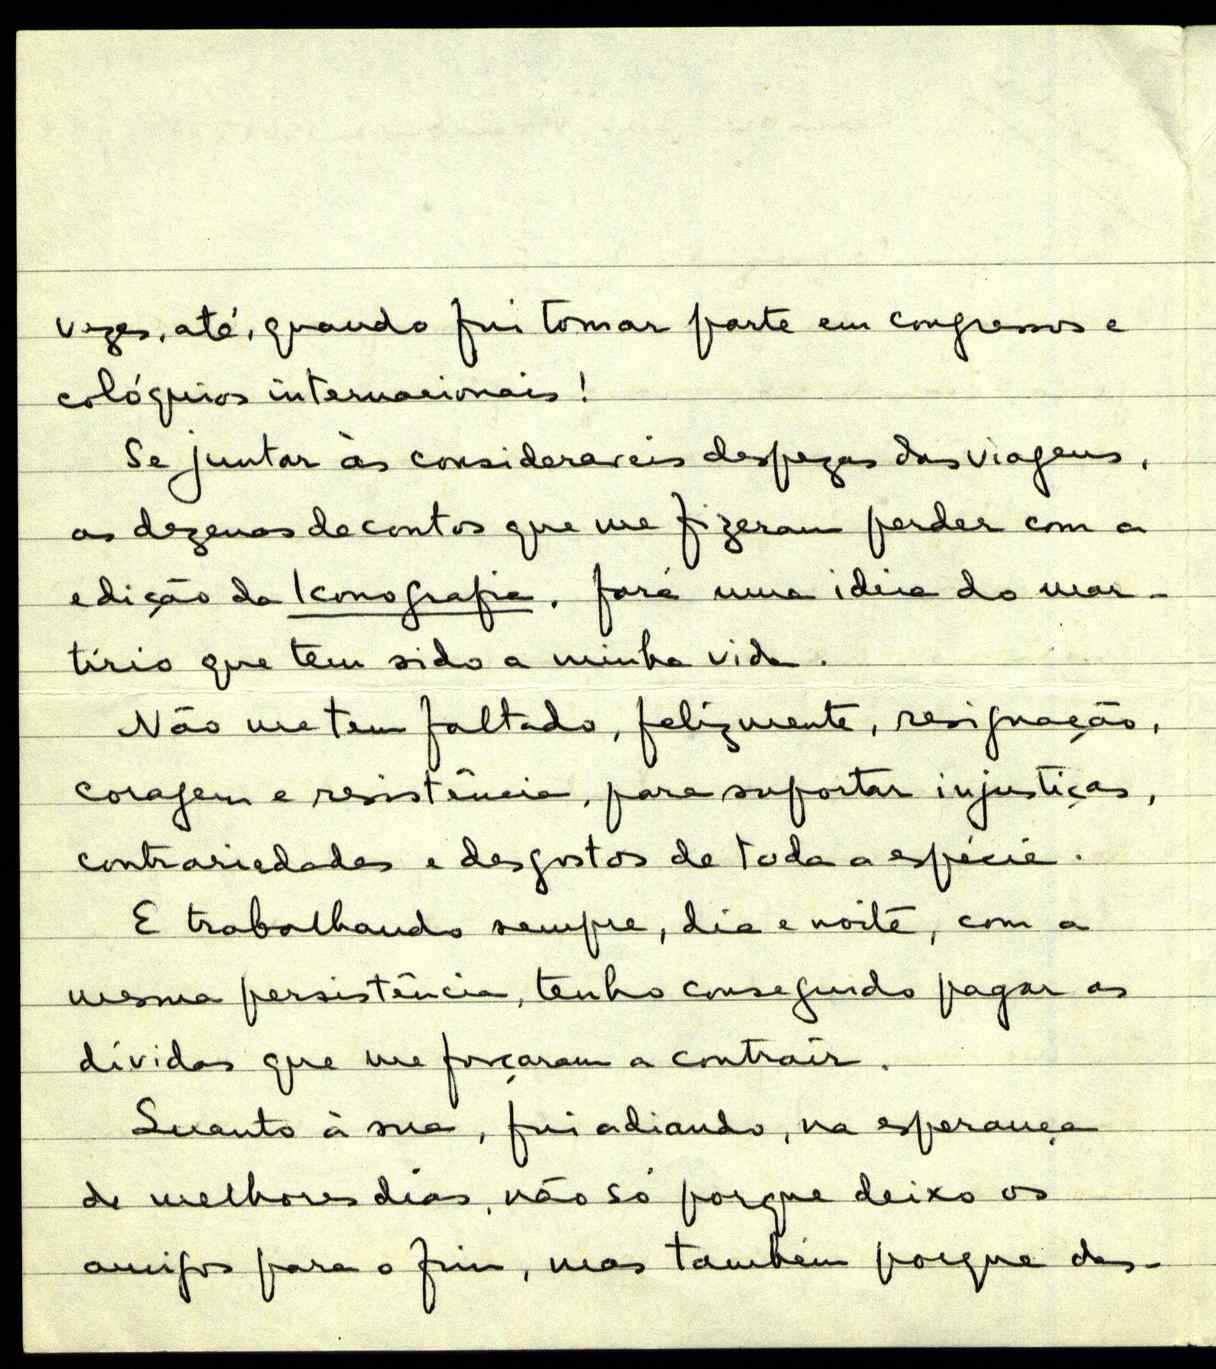 vezes, até, quando fui tomar parte em congressos e
colóquios internacionais!
Se juntar às consideraveis despezas das viagens,
as dezenas de contos que me fizeram perder com a
edição da Iconografia, fará uma ideia do mar-
tírio que tem sido a minha vida.
Não me tem faltado, felizmente, resignação,
coragem e resistência, para suportar injustiças,
contrariedades e desgostos de toda a espécie.
E trabalhando sempre, dia e noite, com a
mesma persistência, tenho conseguido pagar as
dívidas que me forçaram a contrair.
Quanto à sua, fui adiando, na esperança
de melhores dias, não só porque deixo os
amigos para o fim, mas também porque des-